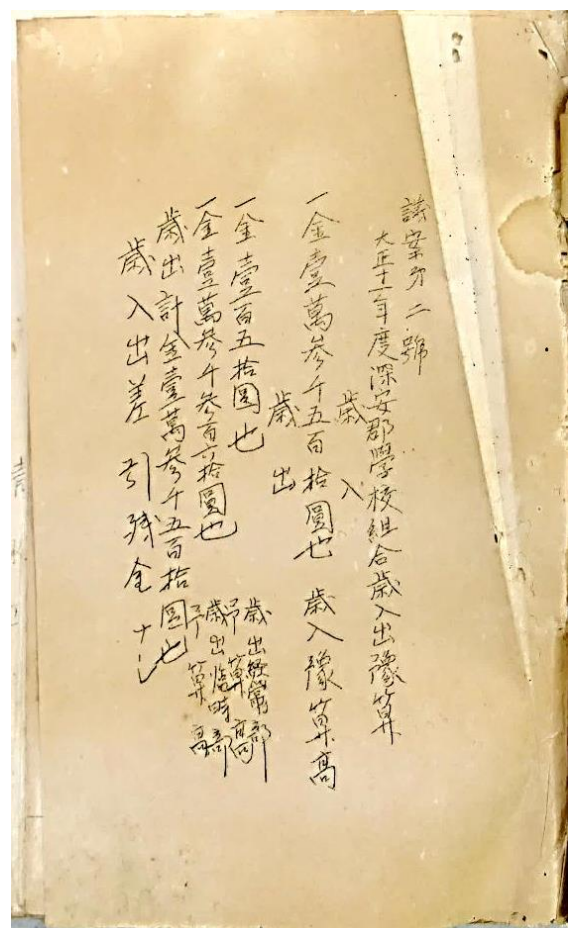 議案第二號
大正十一年度深安郡學校組合歳入出豫算
歳入
一金壹萬參千五百拾圓也 歳入豫算高
歳出
一金壹百五拾圓也 歳出経常部予算高
一金壹萬參千參百六拾圓也 歳出臨時部予算高
歳出計金壹萬參千五百拾圓也
歳入出差引残金ナシ